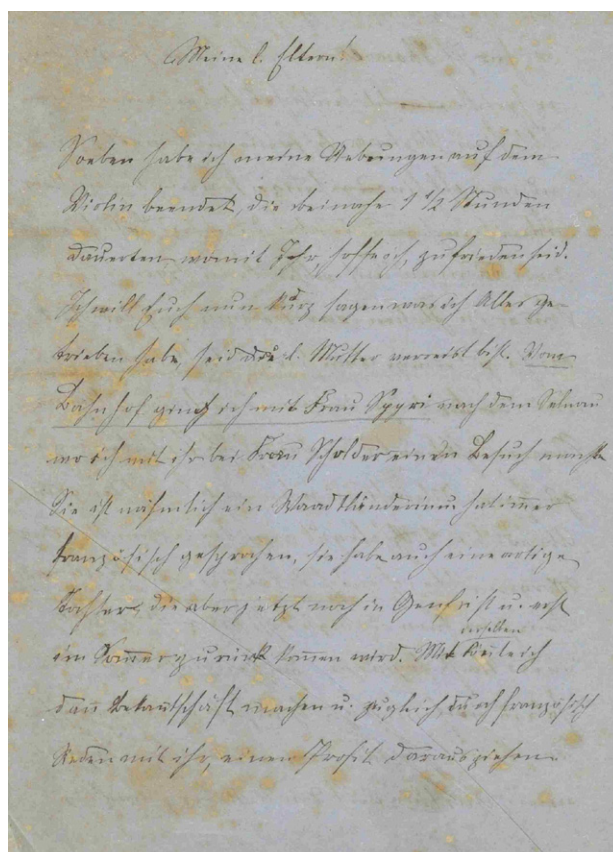 Meine l. Eltern!
Soeben habe ich meine Uebungen auf dem
Violin beendet, die beinahe 1 1/2 Stunden
dauerten womit Ihr, hoff ich, zufrieden seid.
Ich will Euch nun kurz sagen was ich Alles ge-
trieben habe, seid du l. Mutter verreist bist. Vom
Bahnhof ging ich mit Frau Spyri nach dem Selnau
wo ich mit ihr bei Frau Scholder einen Besuch machte
Sie ist nähmlich ein Waadtländerinn hat immer
französisch gesprochen, sie habe auch eine artige
Tochter, die aber jetzt noch in Genf ist u. erst
im Sommer zurück kommen wird. Mit derselben ich
dann Bekantschaft machen u. zugleich, durch französisch
Reden mit ihr, einen Profit daraus ziehen